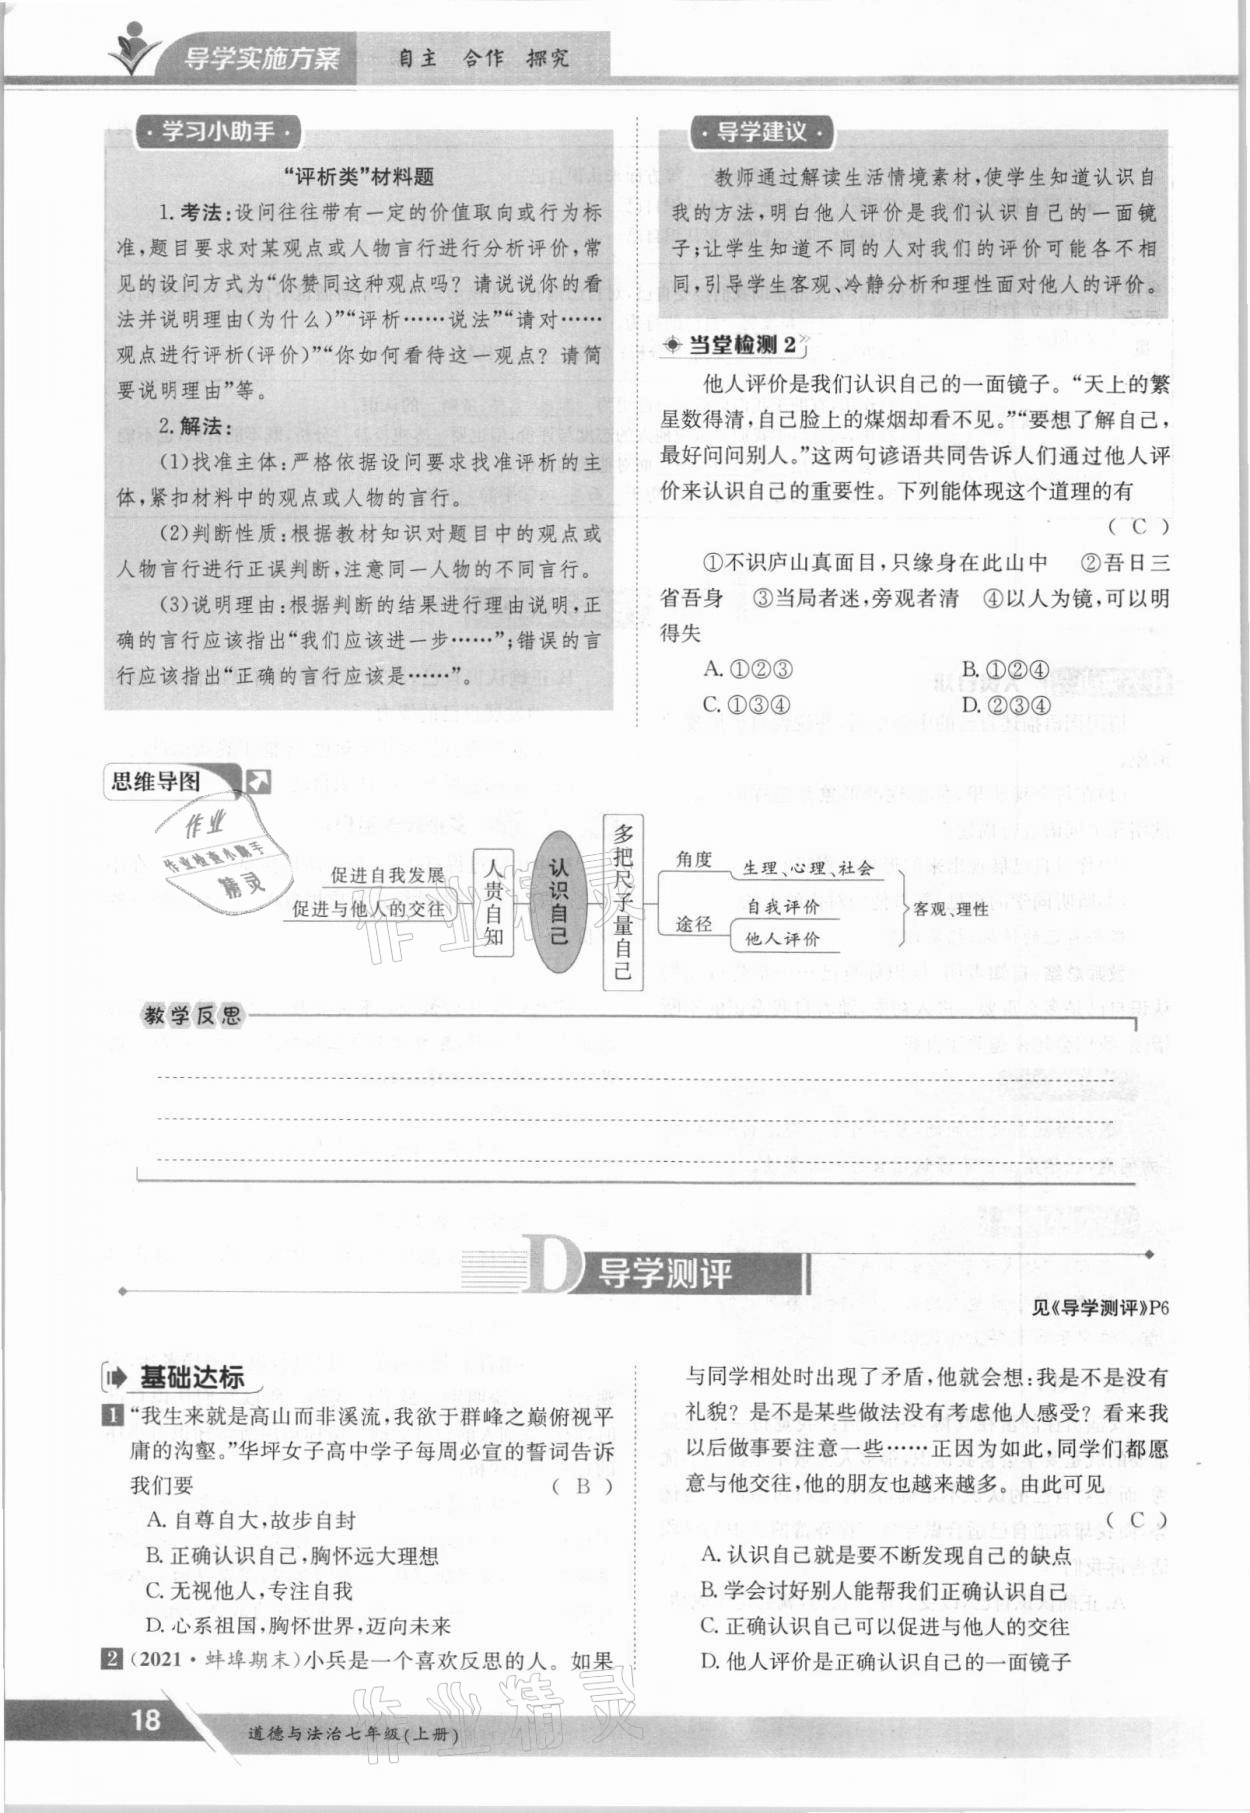 导学实施方案
自主 合作 探究
·学习小助手·
“评析类”材料题
1.考法:设问往往带有一定的价值取向或行为标
准,题目要求对某观点或人物言行进行分析评价,常
见的设问方式为“你赞同这种观点吗？请说说你的看
法并说明理由(为什么)”“评析……说法”“请对……
观点进行评析(评价)”“你如何看待这一观点？请简
要说明理由”等。
2.解法:
(1)找准主体:严格依据设问要求找准评析的主
体,紧扣材料中的观点或人物的言行。
(2)判断性质:根据教材知识对题目中的观点或
人物言行进行正误判断,注意同一人物的不同言行。
(3)说明理由:根据判断的结果进行理由说明,正
确的言行应该指出“我们应该进一步……”;错误的言
行应该指出“正确的言行应该是……”。
·导学建议·
教师通过解读生活情境素材,使学生知道认识自
我的方法,明白他人评价是我们认识自己的一面镜
子;让学生知道不同的人对我们的评价可能各不相
同,引导学生客观、冷静分析和理性面对他人的评价。
当堂检测2
他人评价是我们认识自己的一面镜子。“天上的繁
星数得清,自己脸上的煤烟却看不见。”“要想了解自己,
最好问问别人。”这两句谚语共同告诉人们通过他人评
价来认识自己的重要性。下列能体现这个道理的有
( C )
①不识庐山真面目,只缘身在此山中 ②吾日三
省吾身 ③当局者迷,旁观者清 ④以人为镜,可以明
得失
A.①②③ B.①②④
C.①③④ D.②③④
思维导图
作业
作业检查小助手
精灵
促进自我发展
促进与他人的交往
人贵自知
认识自己
多把尺子量自己
角度
生理、心理、社会
途径
自我评价
他人评价
客观、理性
作业精灵
教学反思
D 导学测评
见《导学测评》P6
基础达标
1 “我生来就是高山而非溪流,我欲于群峰之巅俯视平
庸的沟壑。”华坪女子高中学子每周必宣的誓词告诉
我们要 ( B )
A.自尊自大,故步自封
B.正确认识自己,胸怀远大理想
C.无视他人,专注自我
D.心系祖国,胸怀世界,迈向未来
2 (2021·蚌埠期末)小兵是一个喜欢反思的人。如果
与同学相处时出现了矛盾,他就会想:我是不是没有
礼貌？是不是某些做法没有考虑他人感受？看来我
以后做事要注意一些……正因为如此,同学们都愿
意与他交往,他的朋友也越来越多。由此可见
( C )
A.认识自己就是要不断发现自己的缺点
B.学会讨好别人能帮我们正确认识自己
C.正确认识自己可以促进与他人的交往
D.他人评价是正确认识自己的一面镜子
作业精灵
18
道德与法治七年级(上册)